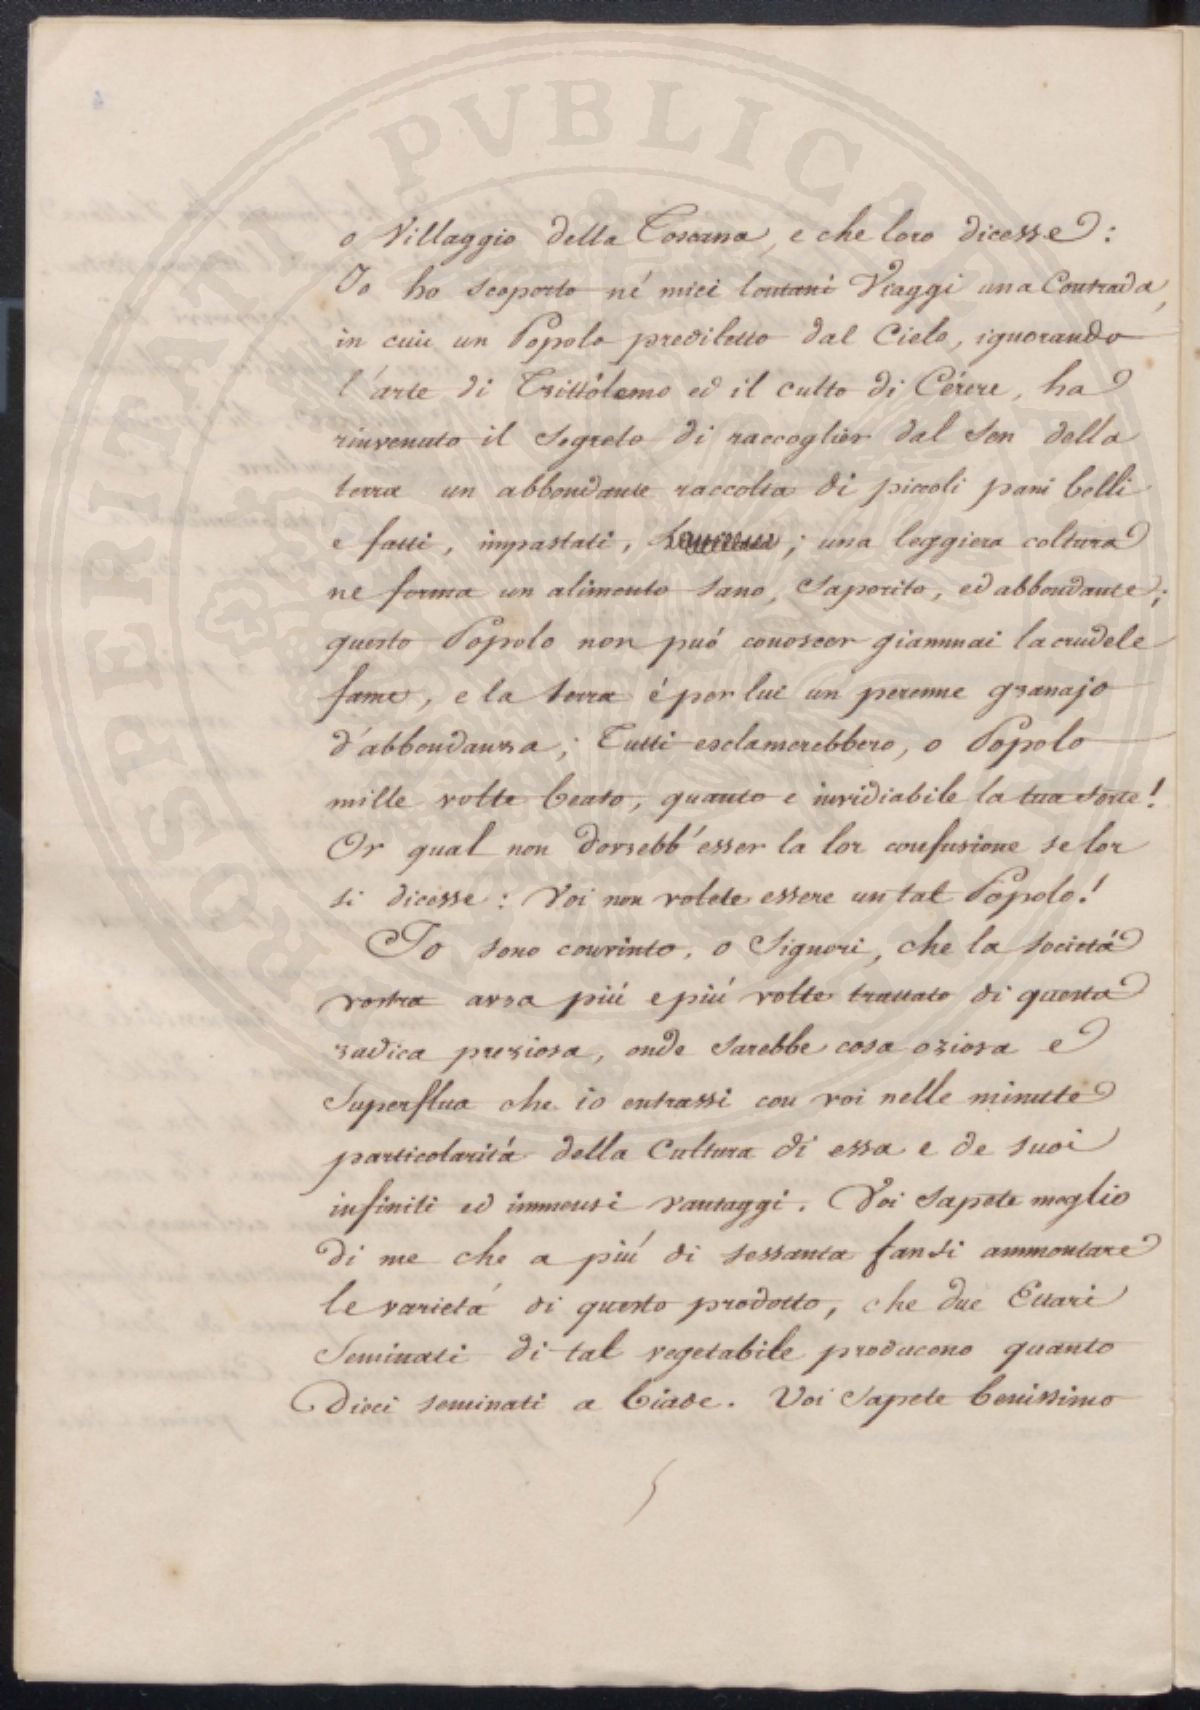 o Villaggio della Toscana, e che loro dicesse:
Io ho scoperto né miei lontani Viaggi una Contrada,
in cui un Popolo prediletto dal Cielo, ignorando
l'arte di Trittólemo ed il culto di Cérere, ha
rinvenuto il Segreto di raccoglier dal Sen della
terra un abbondante raccolta di piccoli pani belli
e fatti, impastati, ; una leggiera coltura
ne forma un alimento sano, Saporito, ed abbondante;
questo Popolo non puó conoscer giammai la crudele
fame, e la terra é per lui un perenne granajo
d'abbondanza; Tutti esclamerebbero, o Popolo
mille volte beato, quanto e invidiabile la tua sorte!
Or qual non dovrebb'esser la lor confusione se lor
si dicesse: Voi non volete essere un tal Popolo!
Io sono convinto, o Signori, che la Societá
vostra avra piú e piú volte trattato di questa
radica preziosa, onde Sarebbe cosa oziosa e
Superflua che io entrassi con voi nelle minute
particolaritá della Cultura di essa e de suoi
infiniti ed immensi vantaggi. Voi Sapete meglio
di me che a piú di sessanta fansi ammontare
le varietá di questo prodotto, che due Ettari
Seminati di tal vegetabile producono quanto
Dieci seminati a biade. Voi Sapete benissimo
PROSPERITATI PVBLICAE